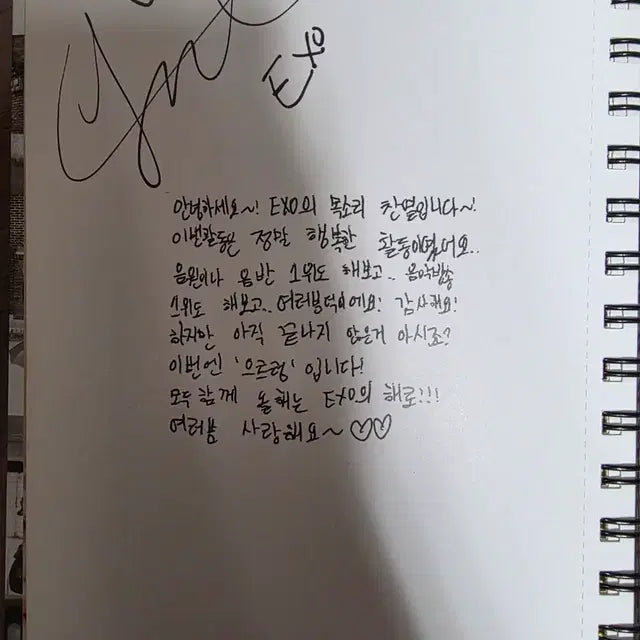 EXO
안녕하세요~! EXO의 목소리 찬열입니다~!
이번활동은 정말 행복한 활동이였어요..
음원이나 음반 1위도 해보고.. 음악방송
1위도 해보고.. 여러분덕이에요! 감사해요!
하지만 아직 끝나지 않은거 아시죠?
이번엔 '으르렁' 입니다!
모두 함께 올해는 EXO의 해로!!!
여러분 사랑해요~♡♡